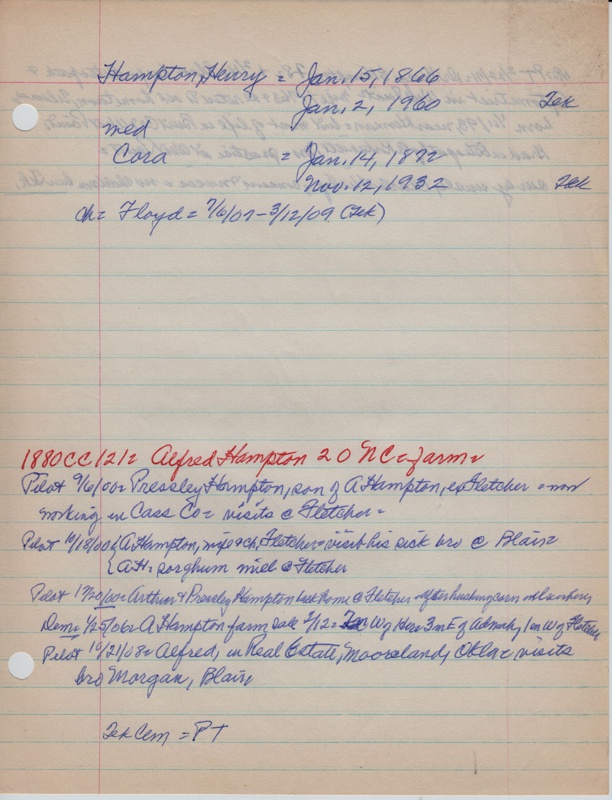 Hampton, Henry = Jan. 15, 1866
Jan. 2, 1960 Tek
med
Cora = Jan. 14, 1872
Nov. 12, 1932 Tek
ch = Floyd = 7/6/07 - 3/12/09 (Tek)
1880 CC 121 = Alfred Hampton 20 NC = farm =
Pilot 9/6/00 = Pressley Hampton, son of A Hampton, Fletcher = now
working in Cass Co = visits @ Fletcher =
Pilot 10/18/00 { A Hampton, wife & ch, Fletcher = visit his sick bro @ Blair =
{ AH = sorghum mill @ Fletcher
Pilot 12/20/00 = Arthur & Pressley Hampton home @ Fletcher after husking corn
Dem = 1/25/06 = A Hampton farm sale 2/12 = W of Here 3 m E of 1 m W of Fletcher
Pilot 10/21/08 = Alfred, in Real Estate, Mooreland, Okla = visits
bro Morgan, Blair
Tek Cem = PT